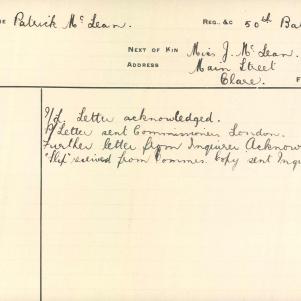 Patrick McLean. REG. &C 50th Ba
NEXT OF KIN Miss J. McLean.
ADDRESS Main Street
Clare.
I/L. Letter acknowledged.
Letter sent Commissioner London.
Further letter from Inquirer Acknow
"Slip" received from Commis. Copy sent Inqu